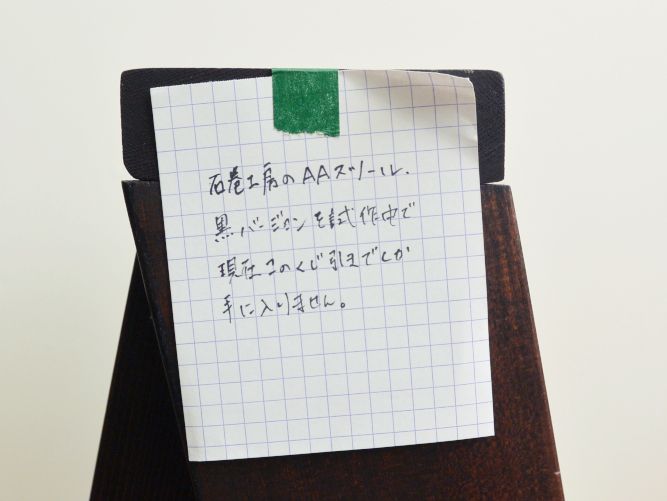 石巻工房のAAスツール.
黒バージョンを試作中で
現在このくじ引きでしか
手に入りません。